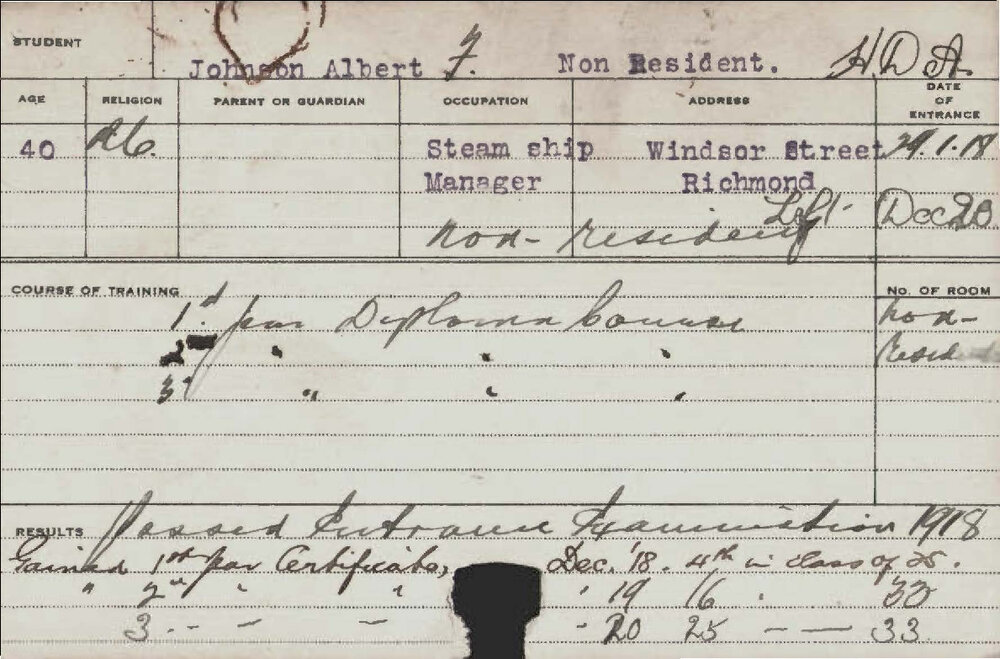 STUDENT Johnson Albert F. Non Resident. H.D.A.
AGE RELIGION PARENT OR GUARDIAN OCCUPATION ADDRESS DATE OF ENTRANCE
40 R.C. Steam ship Windsor Street 29.1.18
Manager Richmond
non-resident Left Dec 20
COURSE OF TRAINING No. OF ROOM
1st year Diploma Course non-
" " " Resid
3rd " " "
RESULTS Passed Entrance Examination 1918
Gained 1st year Certificate, Dec. '18. 4th in class of 25.
" 2nd " " ' 19 16 " 33
3 - - - - 20 25 - - 33